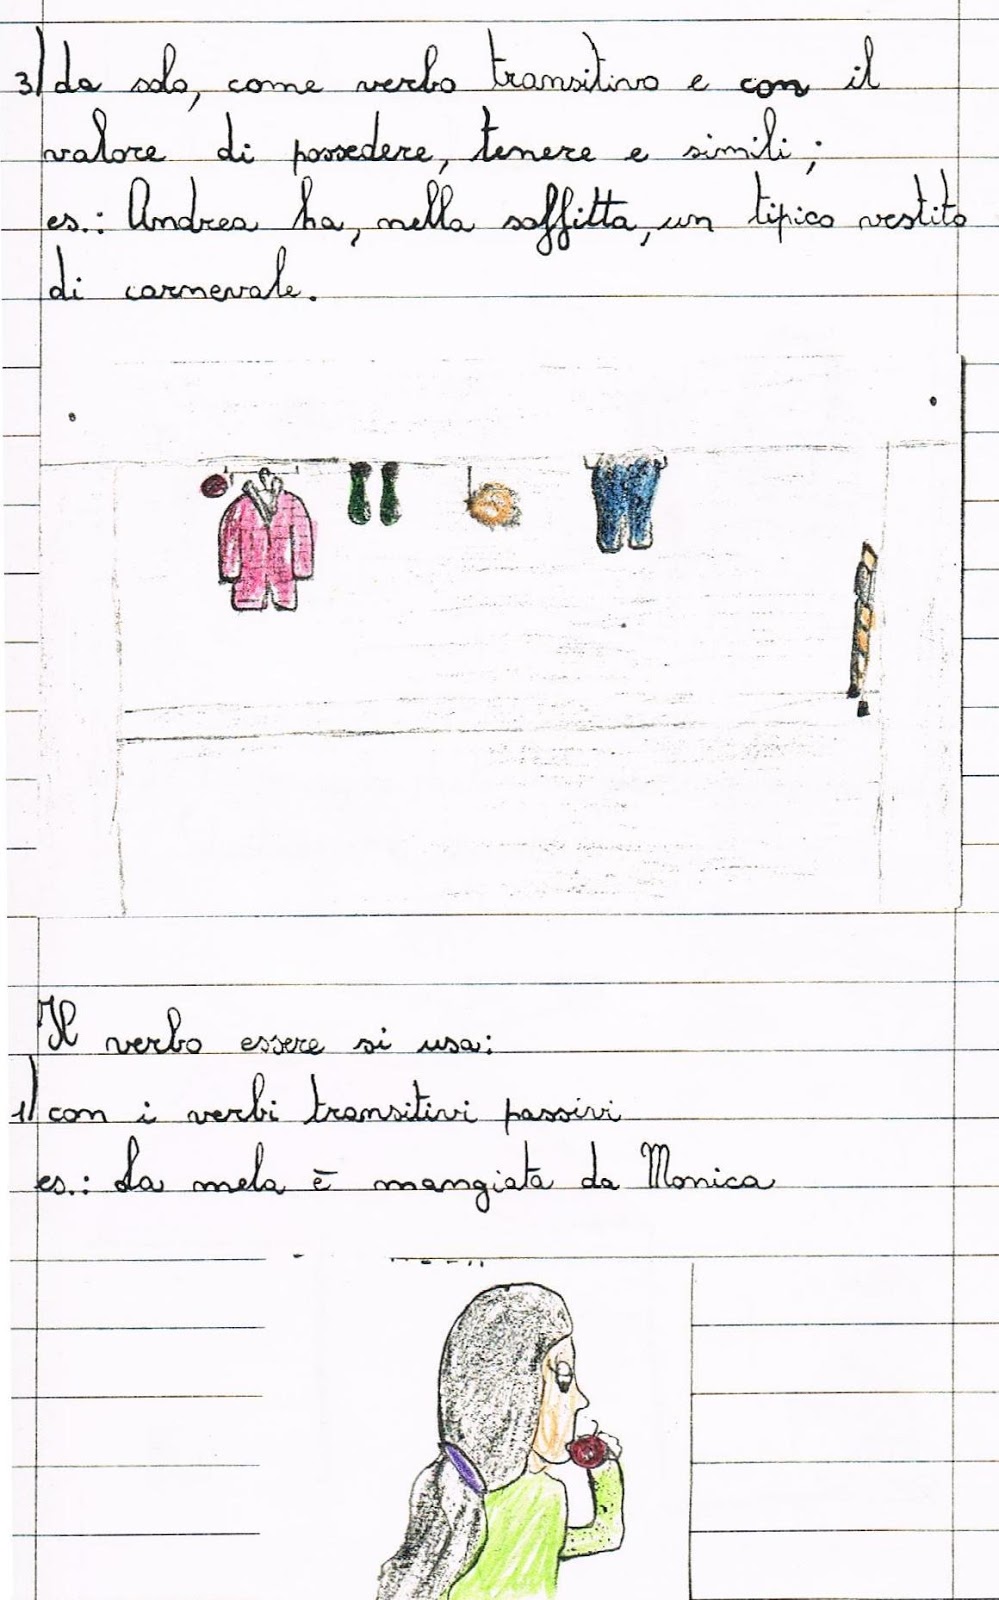 3) da solo, come verbo transitivo e con il
valore di possedere, tenere e simili;
es.: Andrea ha, nella soffitta, un tipico vestito
di carnevale.
Il verbo essere si usa:
1) con i verbi transitivi passivi
es.: La mela è mangiata da Monica